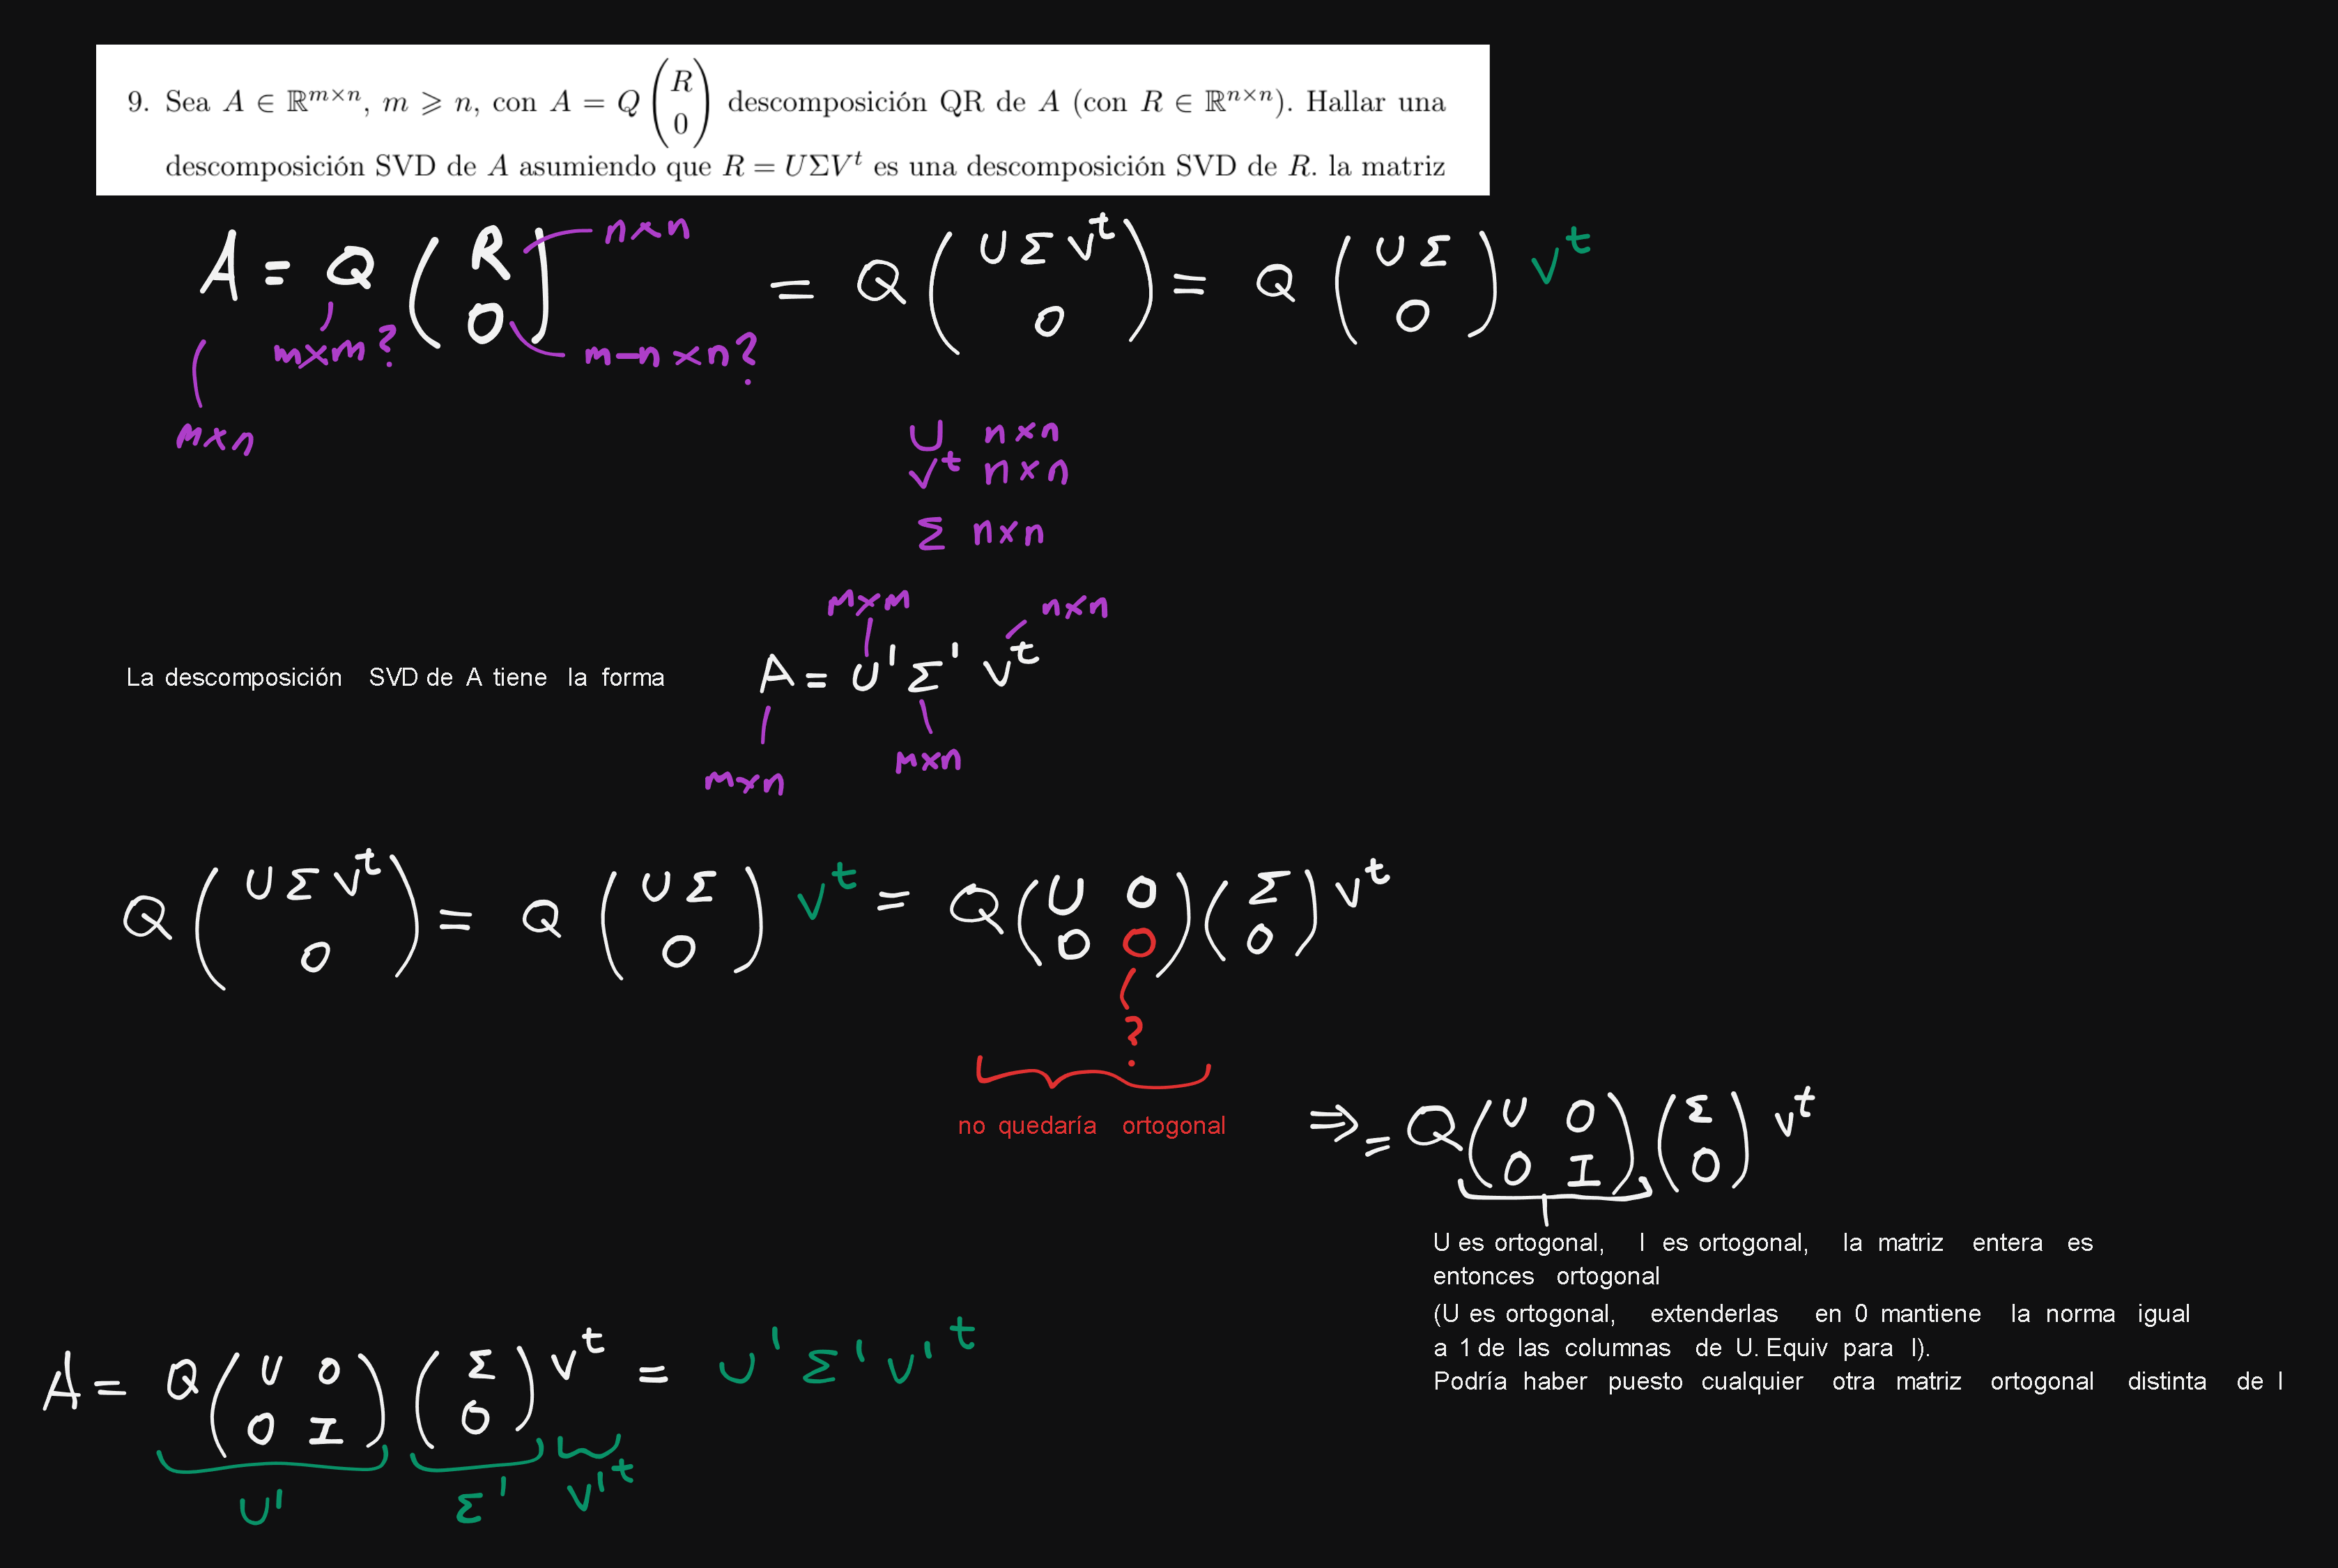 9. Sea A ∈ ℝ^{m×n}, m ⩾ n, con A = Q (R / 0) descomposición QR de A (con R ∈ ℝ^{n×n}). Hallar una
descomposición SVD de A asumiendo que R = UΣV^t es una descomposición SVD de R. la matriz
A = Q (R / 0) = Q (U Σ V^t / 0) = Q (U Σ / 0) V^t
n×n
m×m?
m-n×n?
m×n
U n×n
V^t n×n
Σ n×n
m×m
n×n
La descomposición SVD de A tiene la forma A = U' Σ' V^t
m×n
m×n
Q (U Σ V^t / 0) = Q (U Σ / 0) V^t = Q (U 0 / 0 0) (Σ / 0) V^t
?
no quedaría ortogonal
⇒ = Q (U 0 / 0 I) (Σ / 0) V^t
U es ortogonal, I es ortogonal, la matriz entera es
entonces ortogonal
(U es ortogonal, extenderlas en 0 mantiene la norma igual
a 1 de las columnas de U. Equiv para I).
Podría haber puesto cualquier otra matriz ortogonal distinta de I
A = Q (U 0 / 0 I) (Σ / 0) V^t = U' Σ' V'^t
U' Σ' V'^t